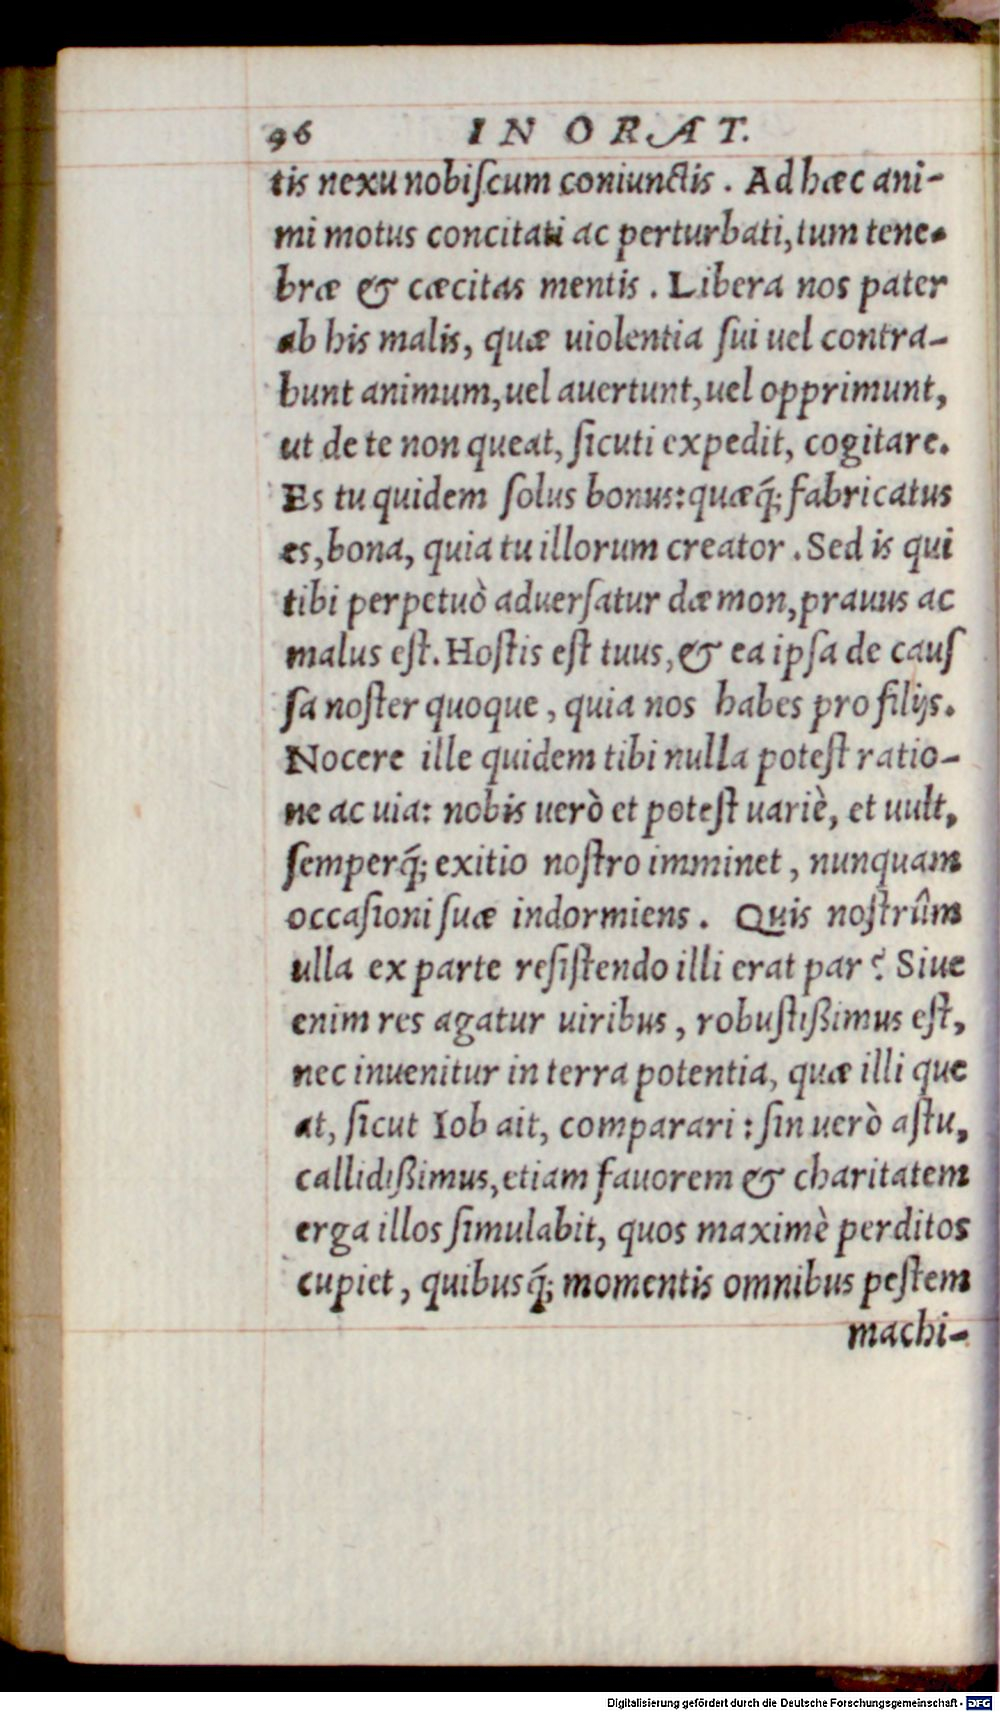 96 IN ORAT.
tis nexu nobiſcum coniunctis. Ad hæc ani-
mi motus concitati ac perturbati, tum tene-
bræ & cæcitas mentis. Libera nos pater
ab his malis, quæ uiolentia ſui uel contra-
hunt animum, uel auertunt, uel opprimunt,
ut de te non queat, ſicuti expedit, cogitare.
Es tu quidem ſolus bonus: quæq́; fabricatus
es, bona, quia tu illorum creator. Sed is qui
tibi perpetuò aduerſatur dæmon, prauus ac
malus eſt. Hoſtis eſt tuus, & ea ipſa de cauſ
ſa noſter quoque, quia nos habes pro filijs.
Nocere ille quidem tibi nulla poteſt ratio-
ne ac uia: nobis uerò et poteſt uariè, et uult,
ſemperq́; exitio noſtro imminet, nunquam
occaſioni ſuæ indormiens. Quis noſtrûm
ulla ex parte reſiſtendo illi erat par? Siue
enim res agatur uiribus, robuſtißimus eſt,
nec inuenitur in terra potentia, quæ illi que
at, ſicut Iob ait, comparari: ſin uerò aſtu,
callidißimus, etiam fauorem & charitatem
erga illos ſimulabit, quos maximè perditos
cupiet, quibusq́; momentis omnibus peſtem
machi-
Digitalisierung gefördert durch die Deutsche Forschungsgemeinschaft - DFG